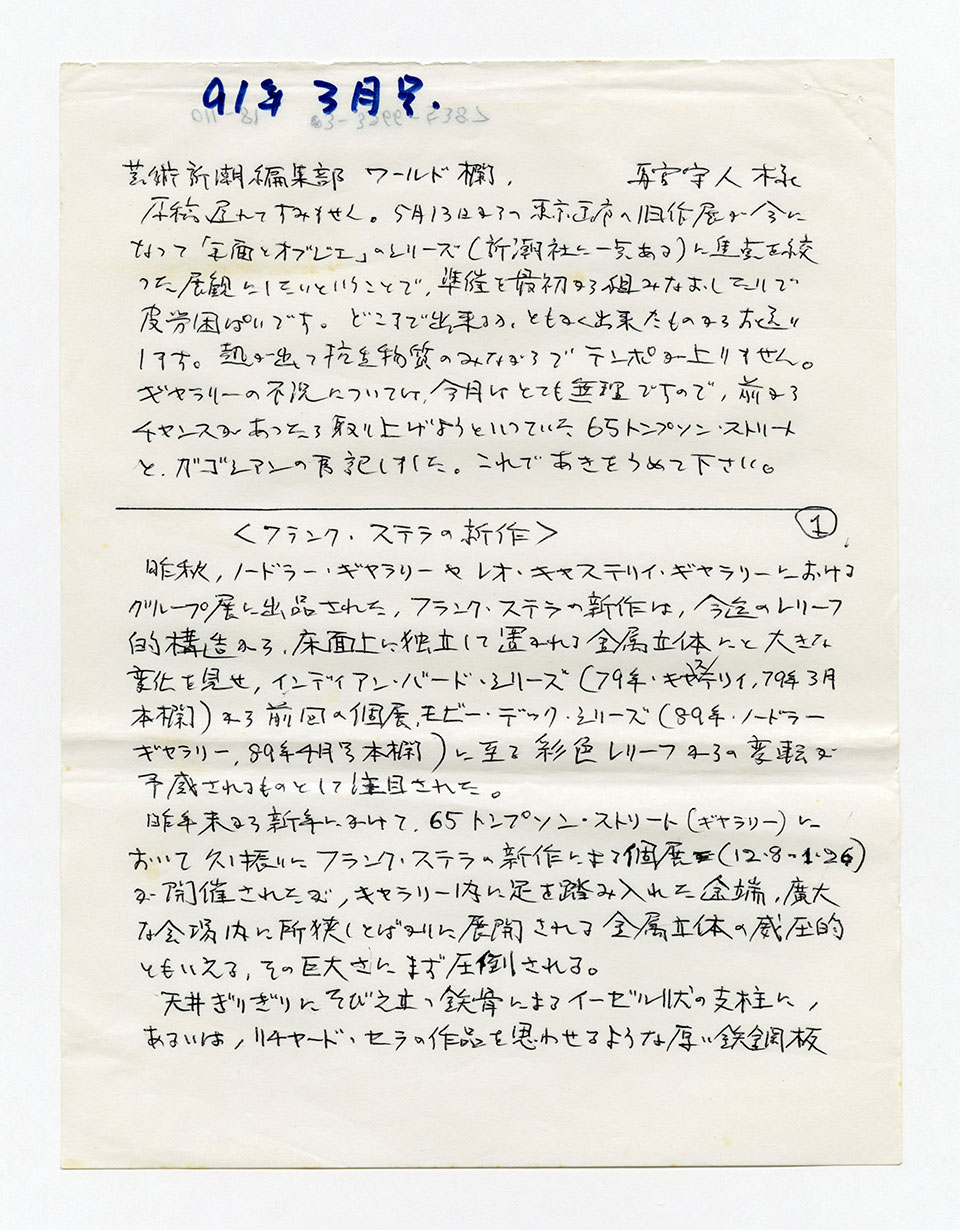 91年 3月号.
芸術新潮編集部 ワールド欄,
様
原稿遅れてすみません。5月13日からの東京画廊の旧作展が今に
なって「全面とオブジェ」のシリーズ(新潮社に一点ある)に焦点を絞
った展観にしたいということで,準備を最初から組みなおしたりで
疲労困ぱいです。どこまで出来るか,ともかく出来たものからお送り
します。熱が出て抗生物質のみながらでテンポが上りません。
ギャラリーの不況については,今月はとても無理ですので,前から
チャンスがあったら取り上げようといっていた 65トンプソン・ストリート
と,ガゴシアンの 記しました。これであきをうめて下さい。
1
<フランク・ステラの新作>
昨秋,ノードラー・ギャラリーやレオ・キャステリイ・ギャラリーにおける
グループ展に出品された,フランク・ステラの新作は,今迄のレリーフ
的構造から,床面上に独立して置かれる金属立体にと大きな
変化を見せ,インディアン・バード・シリーズ(79年・キャステリイ,79年3月
本欄)から前回の個展,モビー・デック・シリーズ(89年・ノードラー
ギャラリー,89年4月号本欄)に至る彩色レリーフからの変転が
予感されるものとして注目された。
昨年末から新年にかけて,65トンプソン・ストリート(ギャラリー)に
おいて久し振りにフランク・ステラの新作による個展(12.8-1.26)
が開催されたが,ギャラリー内に足を踏み入れた途端,廣大
な会場内に所狭しとばかりに展開される金属立体の威圧的
ともいえる,その巨大さにまず圧倒される。
天井ぎりぎりにそびえ立つ鉄骨によるイーゼル状の支柱に,
あるいは,リチャード・セラの作品を思わせるような厚い鉄鋼板